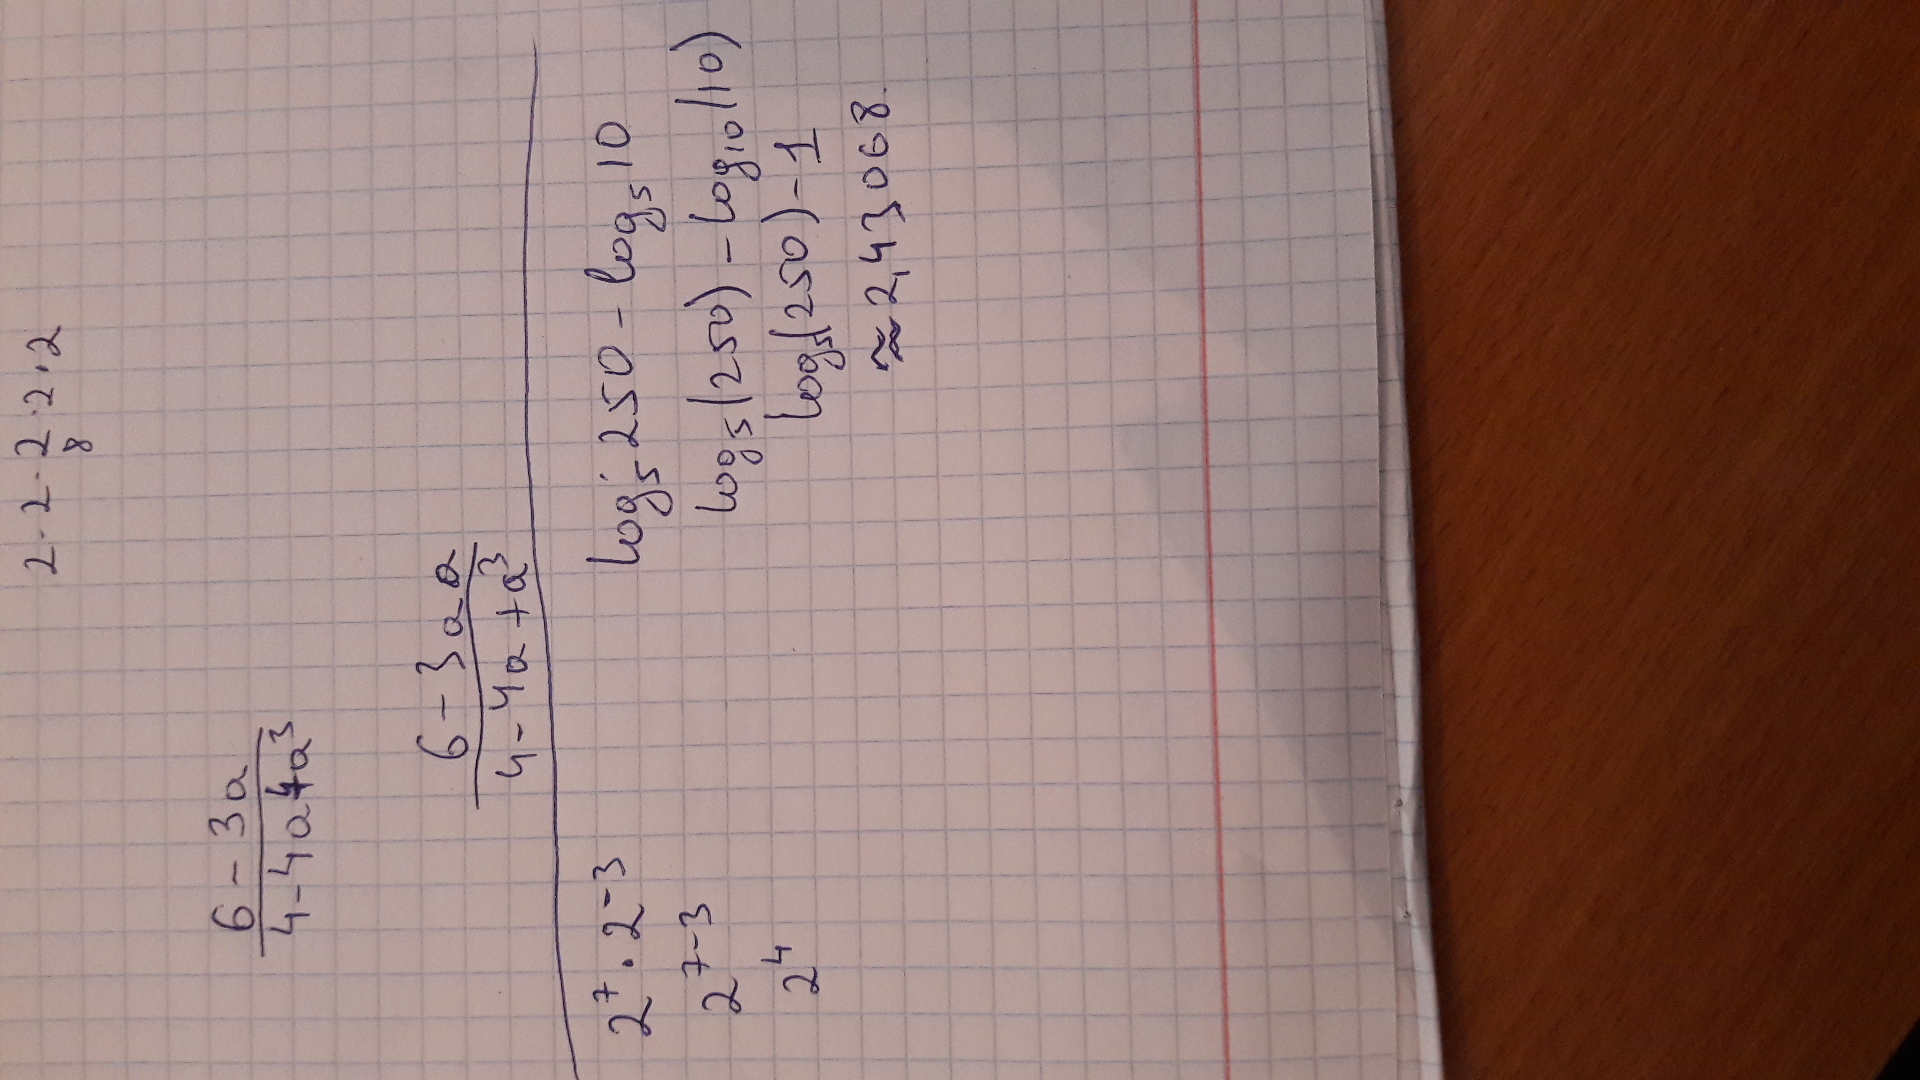 2·2·2·2·2
8
6-3a
4-4a+a³
6-3aa
4-4a+a³
2⁷·2⁻³
2⁷⁻³
2⁴
log₅250-log₅10
log₅(250)-log₁₀(10)
log₅(250)-1
≈2,43068